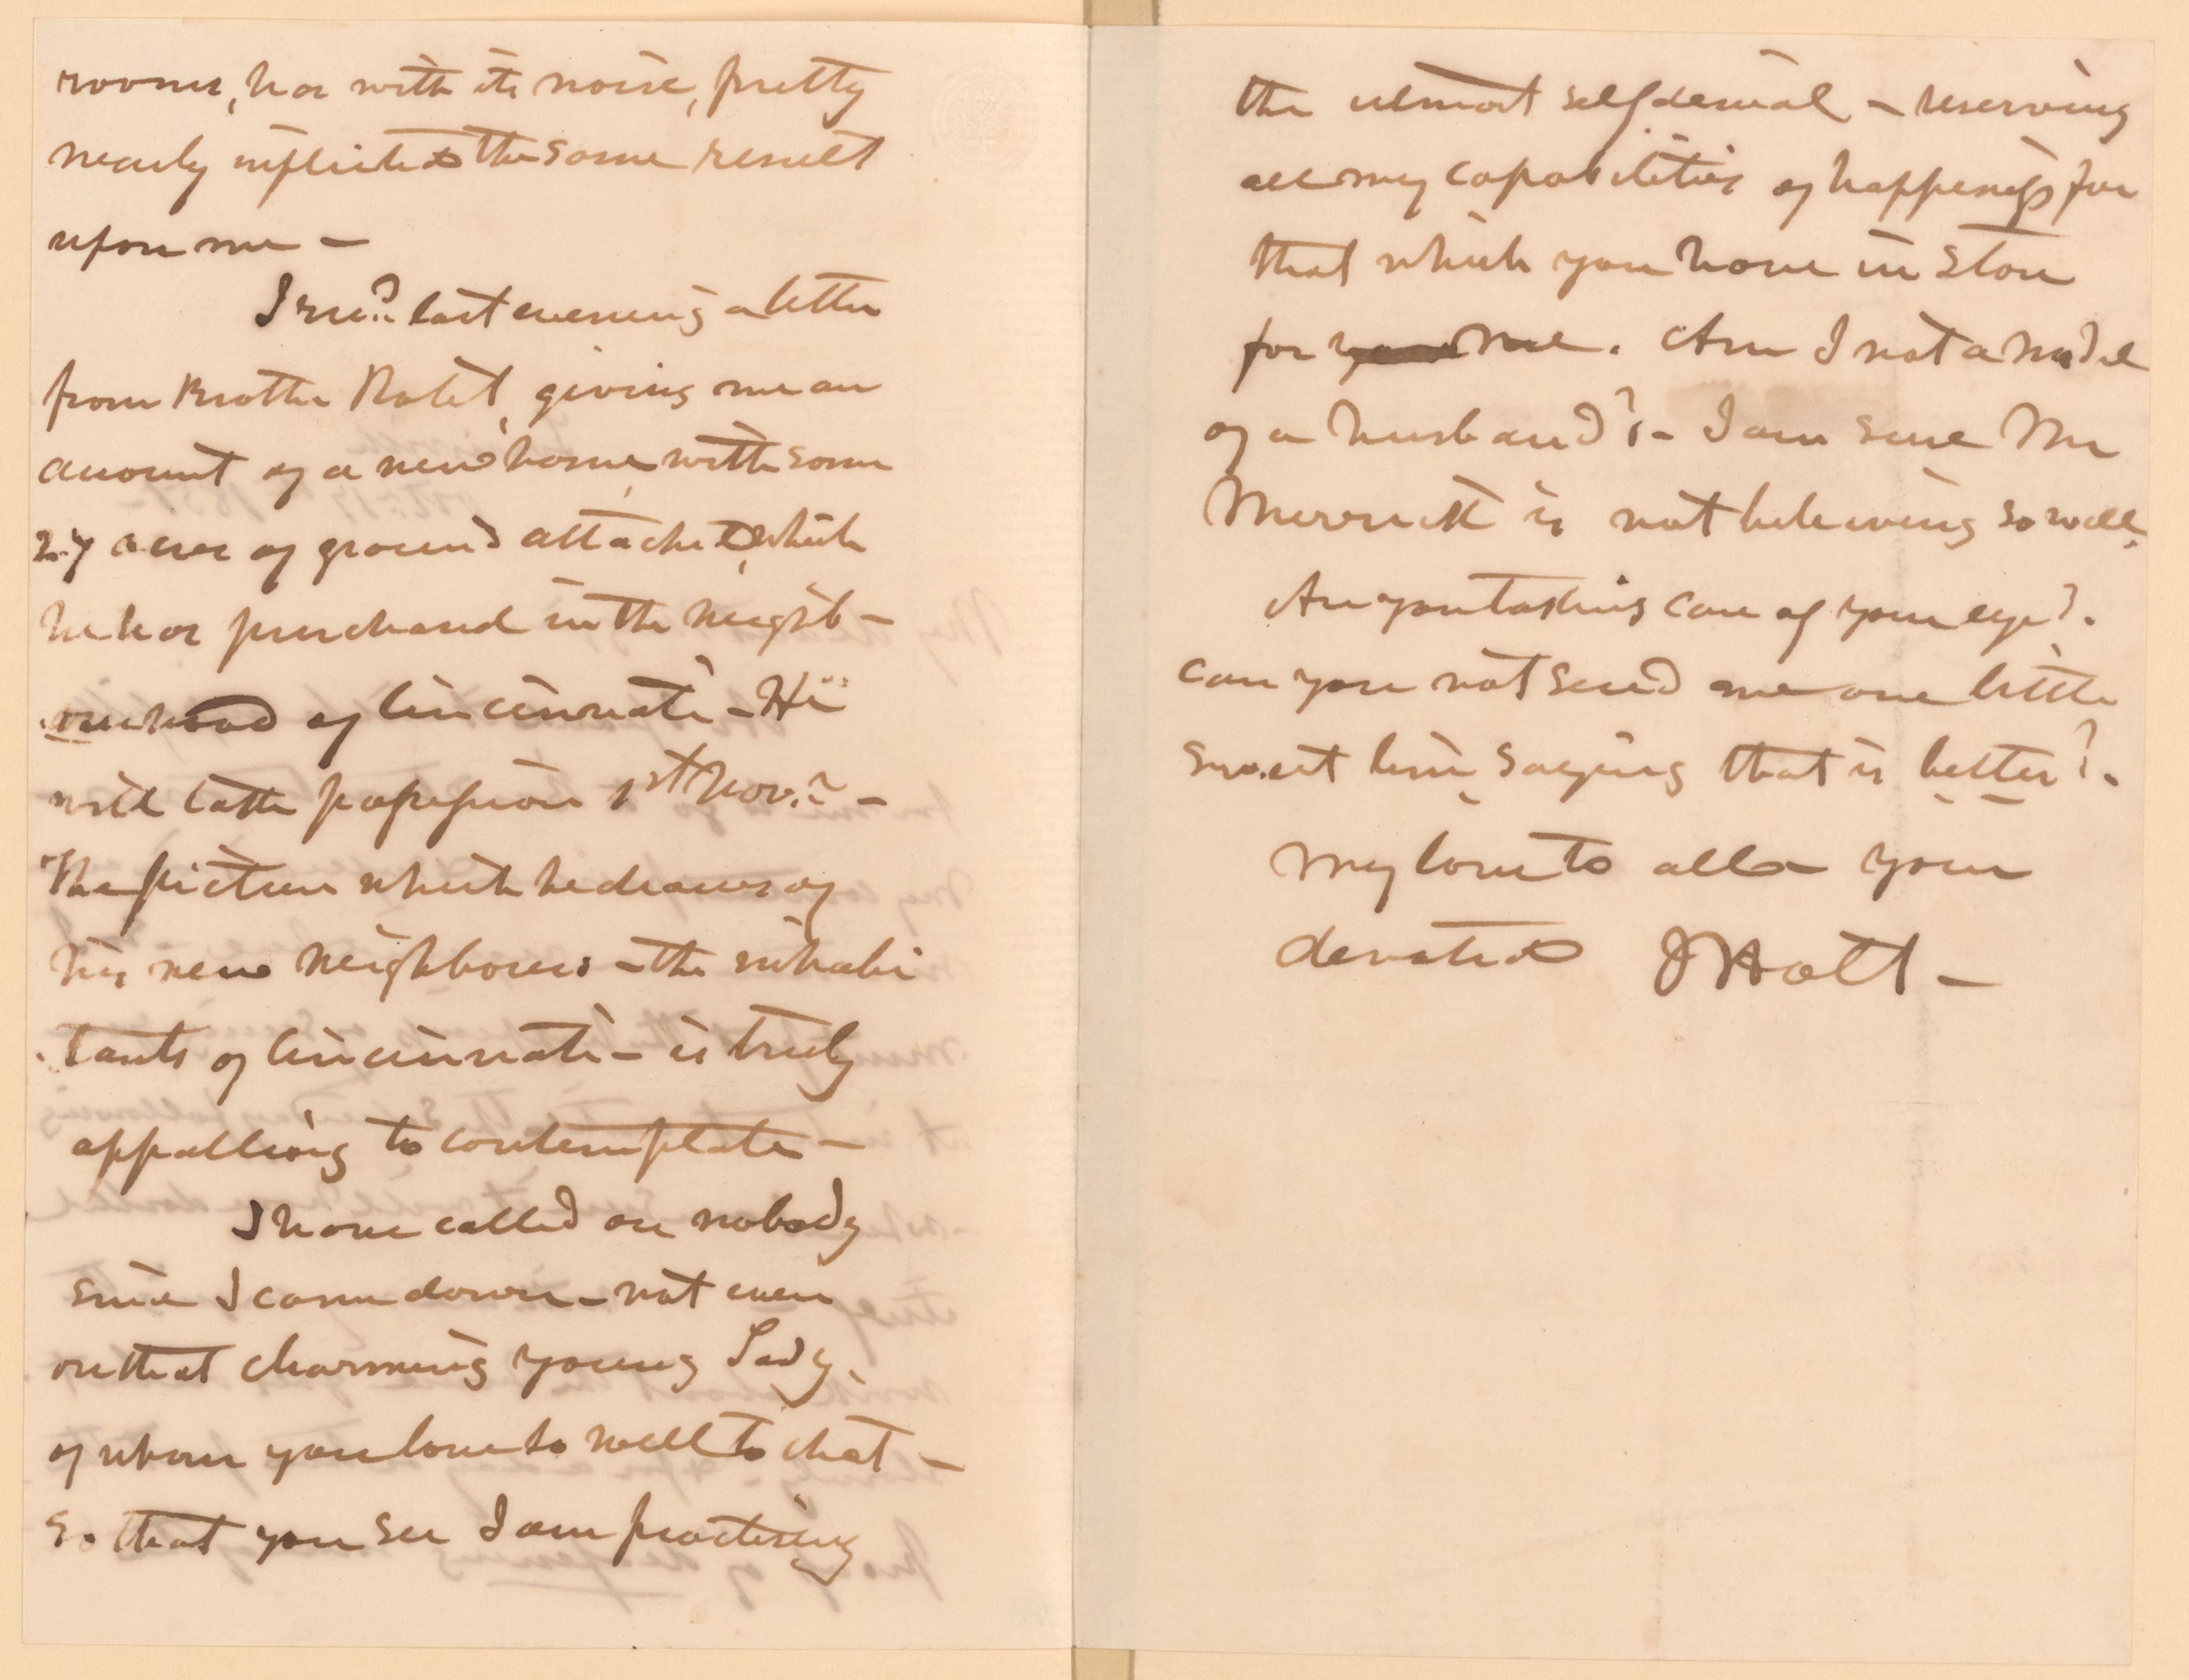 rooms, has with its noise, pretty
nearly inflicted the same result
upon me –
I recd. last evening a letter
from Brother Robt, giving me an
account of a new home, with some
27 acres of ground attached, which
he has purchased in the neighb-
orhood of Cincinnati – He
will take possession 1st Nov. –
The picture which he draws of
his new neighbours – the inhabi
tants of Cincinnati – is truly
appalling to contemplate –
I have called on nobody
since I came down – not even
on that charming young Lady,
of whom you love so well to chat –
So that you see I am practising
the utmost self denial – reserving
all my capabilities of happiness for
that which you have in store
for me. Am I not a model
of a husband? – I am sure Mr
Merrick is not behaving so well.
Are you taking care of your eye?
can you not send me one little
sweet line saying that is better?
My love to all – your
devoted J Holt –